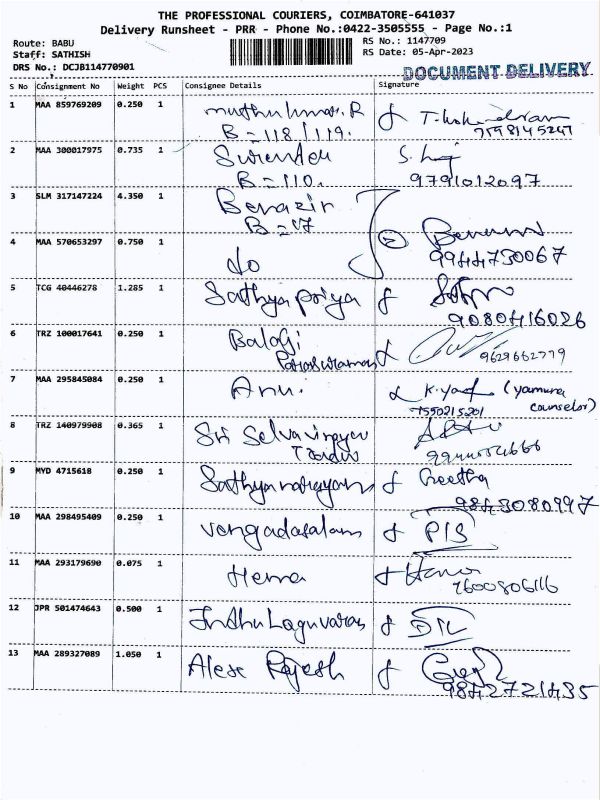 THE PROFESSIONAL COURIERS, COIMBATORE-641037
Delivery Runsheet - PRR - Phone No.:0422-3505555 - Page No.:1
Route: BABU
Staff: SATHISH
DRS No.: DCJB114770901
RS No.: 1147709
RS Date: 05-Apr-2023
DOCUMENT DELIVERY
S No Consignment No Weight PCS Consignee Details Signature
1 MAA 859769209 0.250 1 muthukumar.R
B=118/119.
2 MAA 300017975 0.735 1 Surender
B=110. 9791012097
3 SLM 317147224 4.350 1 Benazir
B=17
4 MAA 570653297 0.750 1 do
9944730067
5 TCG 40446278 1.285 1 Sathyapriya
9080416026
6 TRZ 100017641 0.250 1 Balaji
9629662779
7 MAA 295845084 0.250 1 Anu. (yamuna
7550215201 counselor)
8 TRZ 140979908 0.365 1 Sri Selvavinayaga
Traders
9 MYD 4715618 0.250 1 Sathyanarayanan Geetha
9843080997
10 MAA 298495409 0.250 1 Vengadasalam
11 MAA 293179690 0.075 1 Hema
12 JPR 501474643 0.500 1
13 MAA 289327089 1.050 1 Rajesh
9842721435